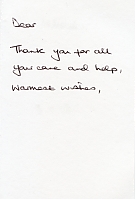 Dear
Thank you for all
you care and help,
Warmest wishes,